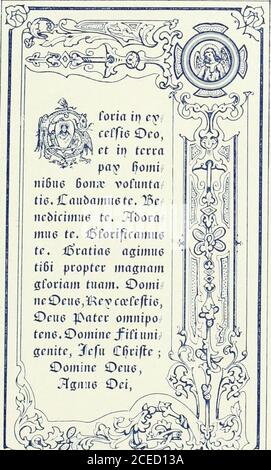 Gloria in ex-
celsis Deo,
et in terra
pax homi-
nibus bonæ volunta-
tis. Laudamus te. Be-
nedicimus te. Adora-
mus te. Glorificamus
te. Gratias agimus
tibi propter magnam
gloriam tuam. Domi-
ne Deus, Rex cœlestis,
Deus Pater omnipo-
tens. Domine Fili uni-
genite, Jesu Christe ;
Domine Deus,
Agnus Dei,
2CED13A